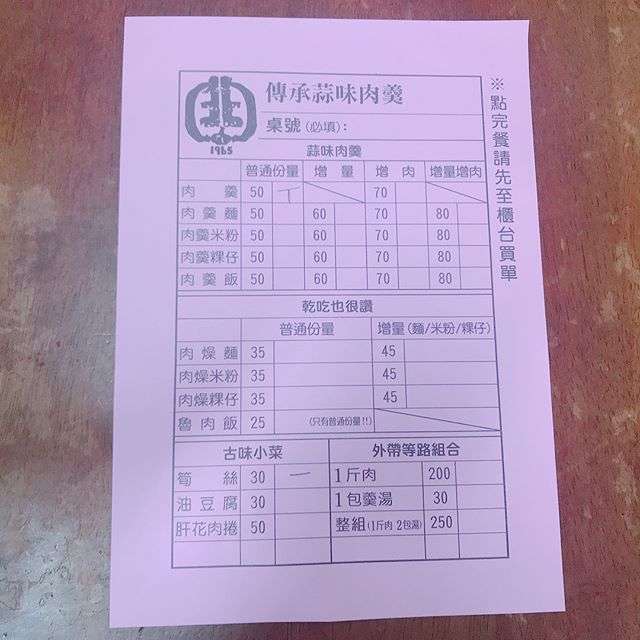 1965
傳承蒜味肉羹
桌號(必填)：
※點完餐請先至櫃台買單
蒜味肉羹
普通份量 增量 增肉 增量增肉
肉羹 50 一 70
肉羹麵 50 60 70 80
肉羹米粉 50 60 70 80
肉羹粿仔 50 60 70 80
肉羹飯 50 60 70 80
乾吃也很讚
普通份量 增量(麵/米粉/粿仔)
肉燥麵 35 45
肉燥米粉 35 45
肉燥粿仔 35 45
魯肉飯 25 (只有普通份量!!)
古味小菜 外帶等路組合
筍絲 30 一 1斤肉 200
油豆腐 30 1包羹湯 30
肝花肉捲 50 整組(1斤肉 2包湯) 250